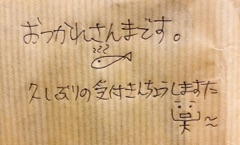 おつかれさんまです。
久しぶりの受付きんちょうしますた